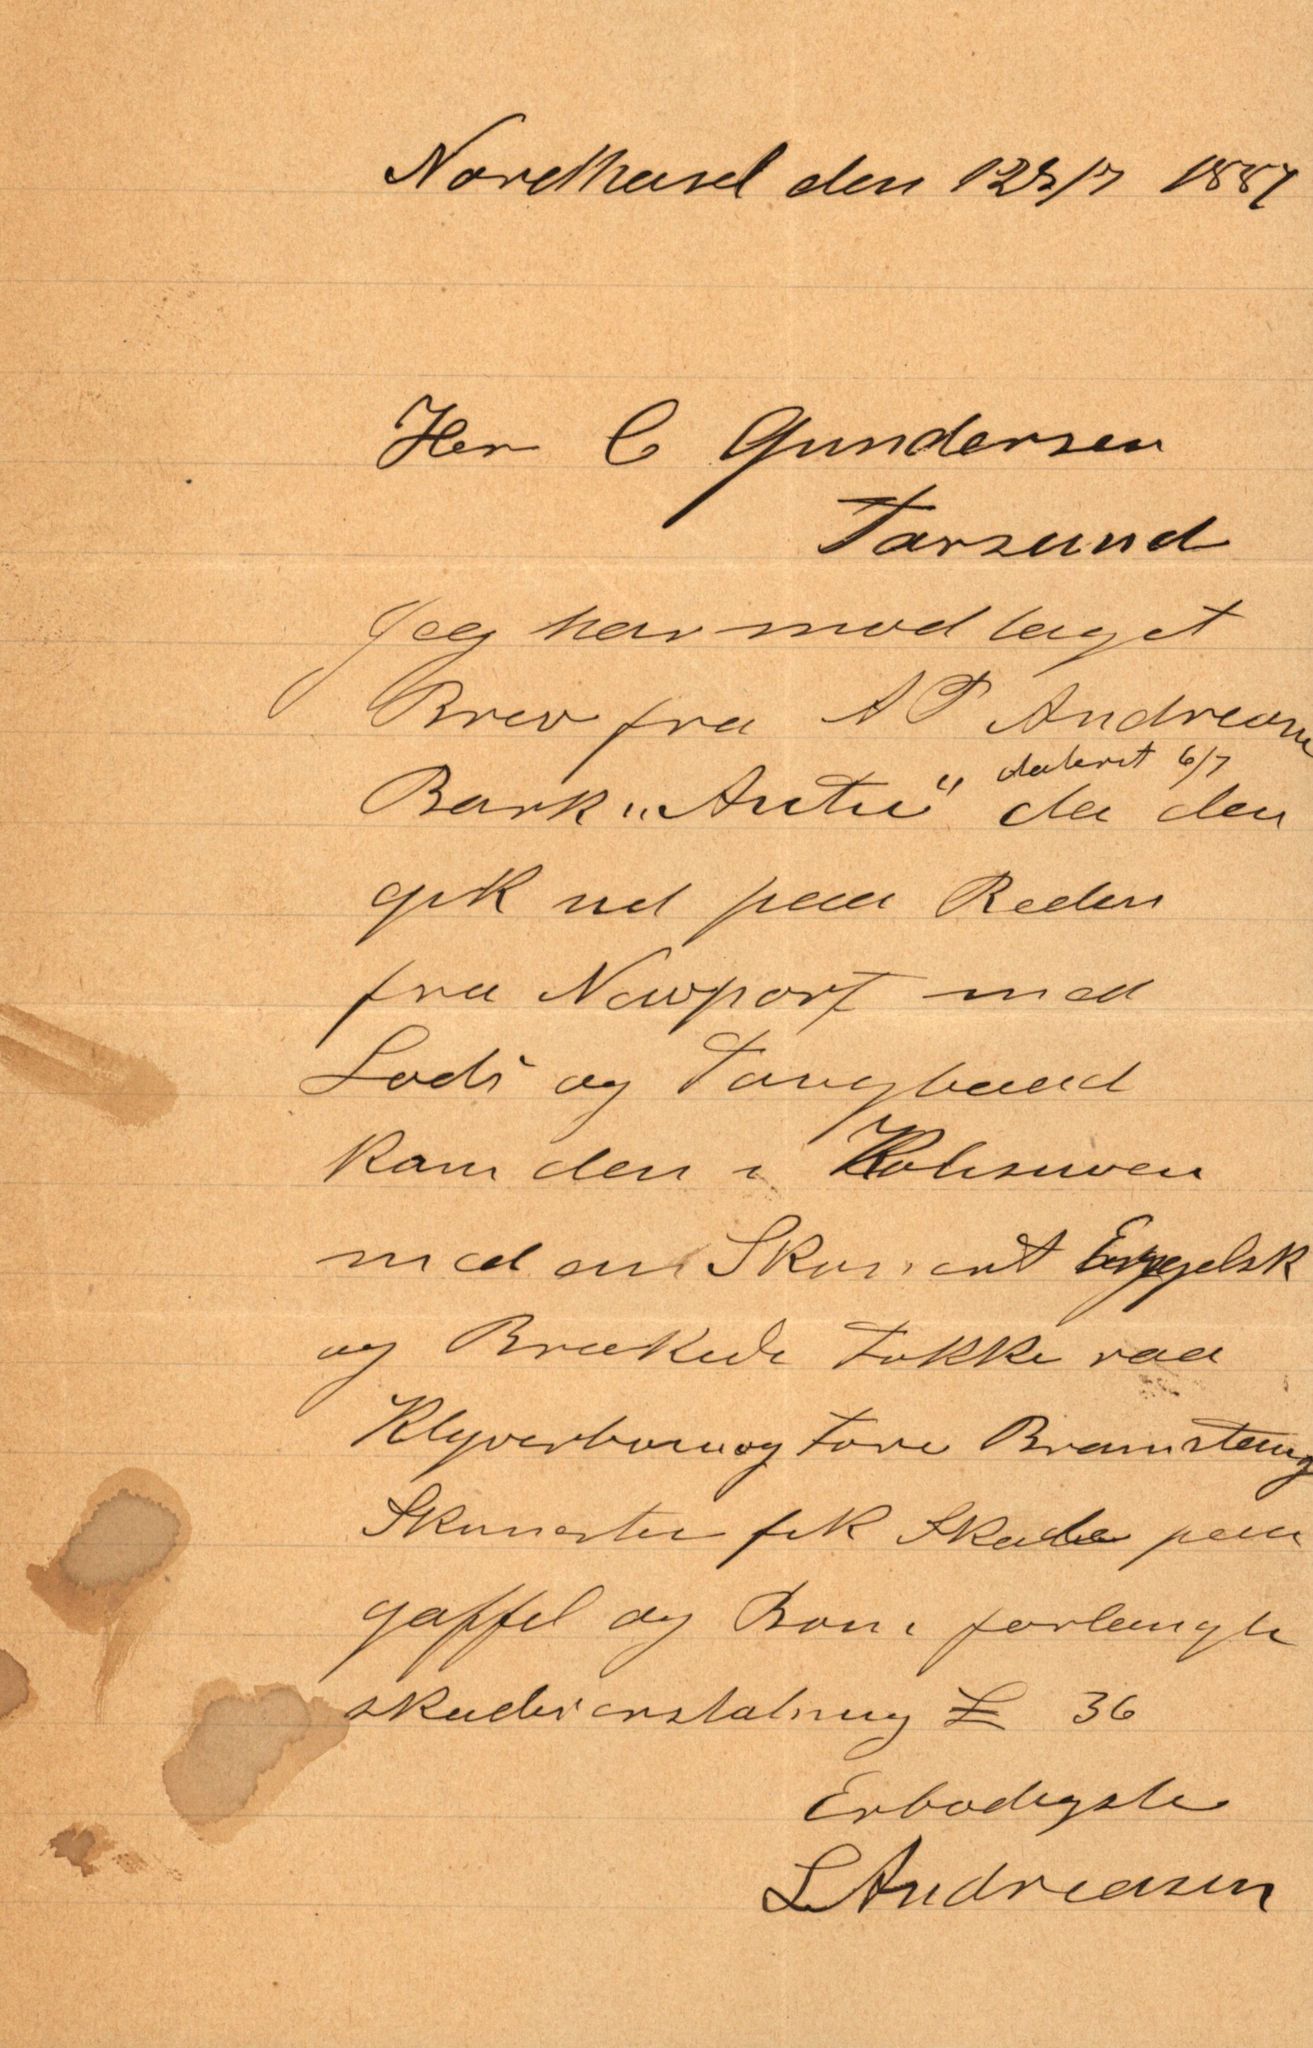 Nordhasel den 12/7 1887
Her C Gundersen
Farsund
Jeg har modtaget
Brev fra A T Andreasen
dateret 6/7
Bark „Antu" da den
gik ud paa Reden
fra Newport med
Lods og Taugbaad
kam den i Kolisiwen
med en Skun ert Engelsk
og Brækede Fokke raa
Klyverbom og Fore Bramstang
Skunerten fik Skade paa
gaffel og Bom, forlangte
skadeserstatning £ 36
Erbødigste
L Andreasen